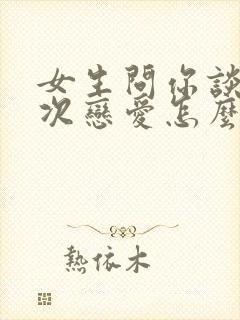 女生問你談
次戀愛怎麼
熱依木